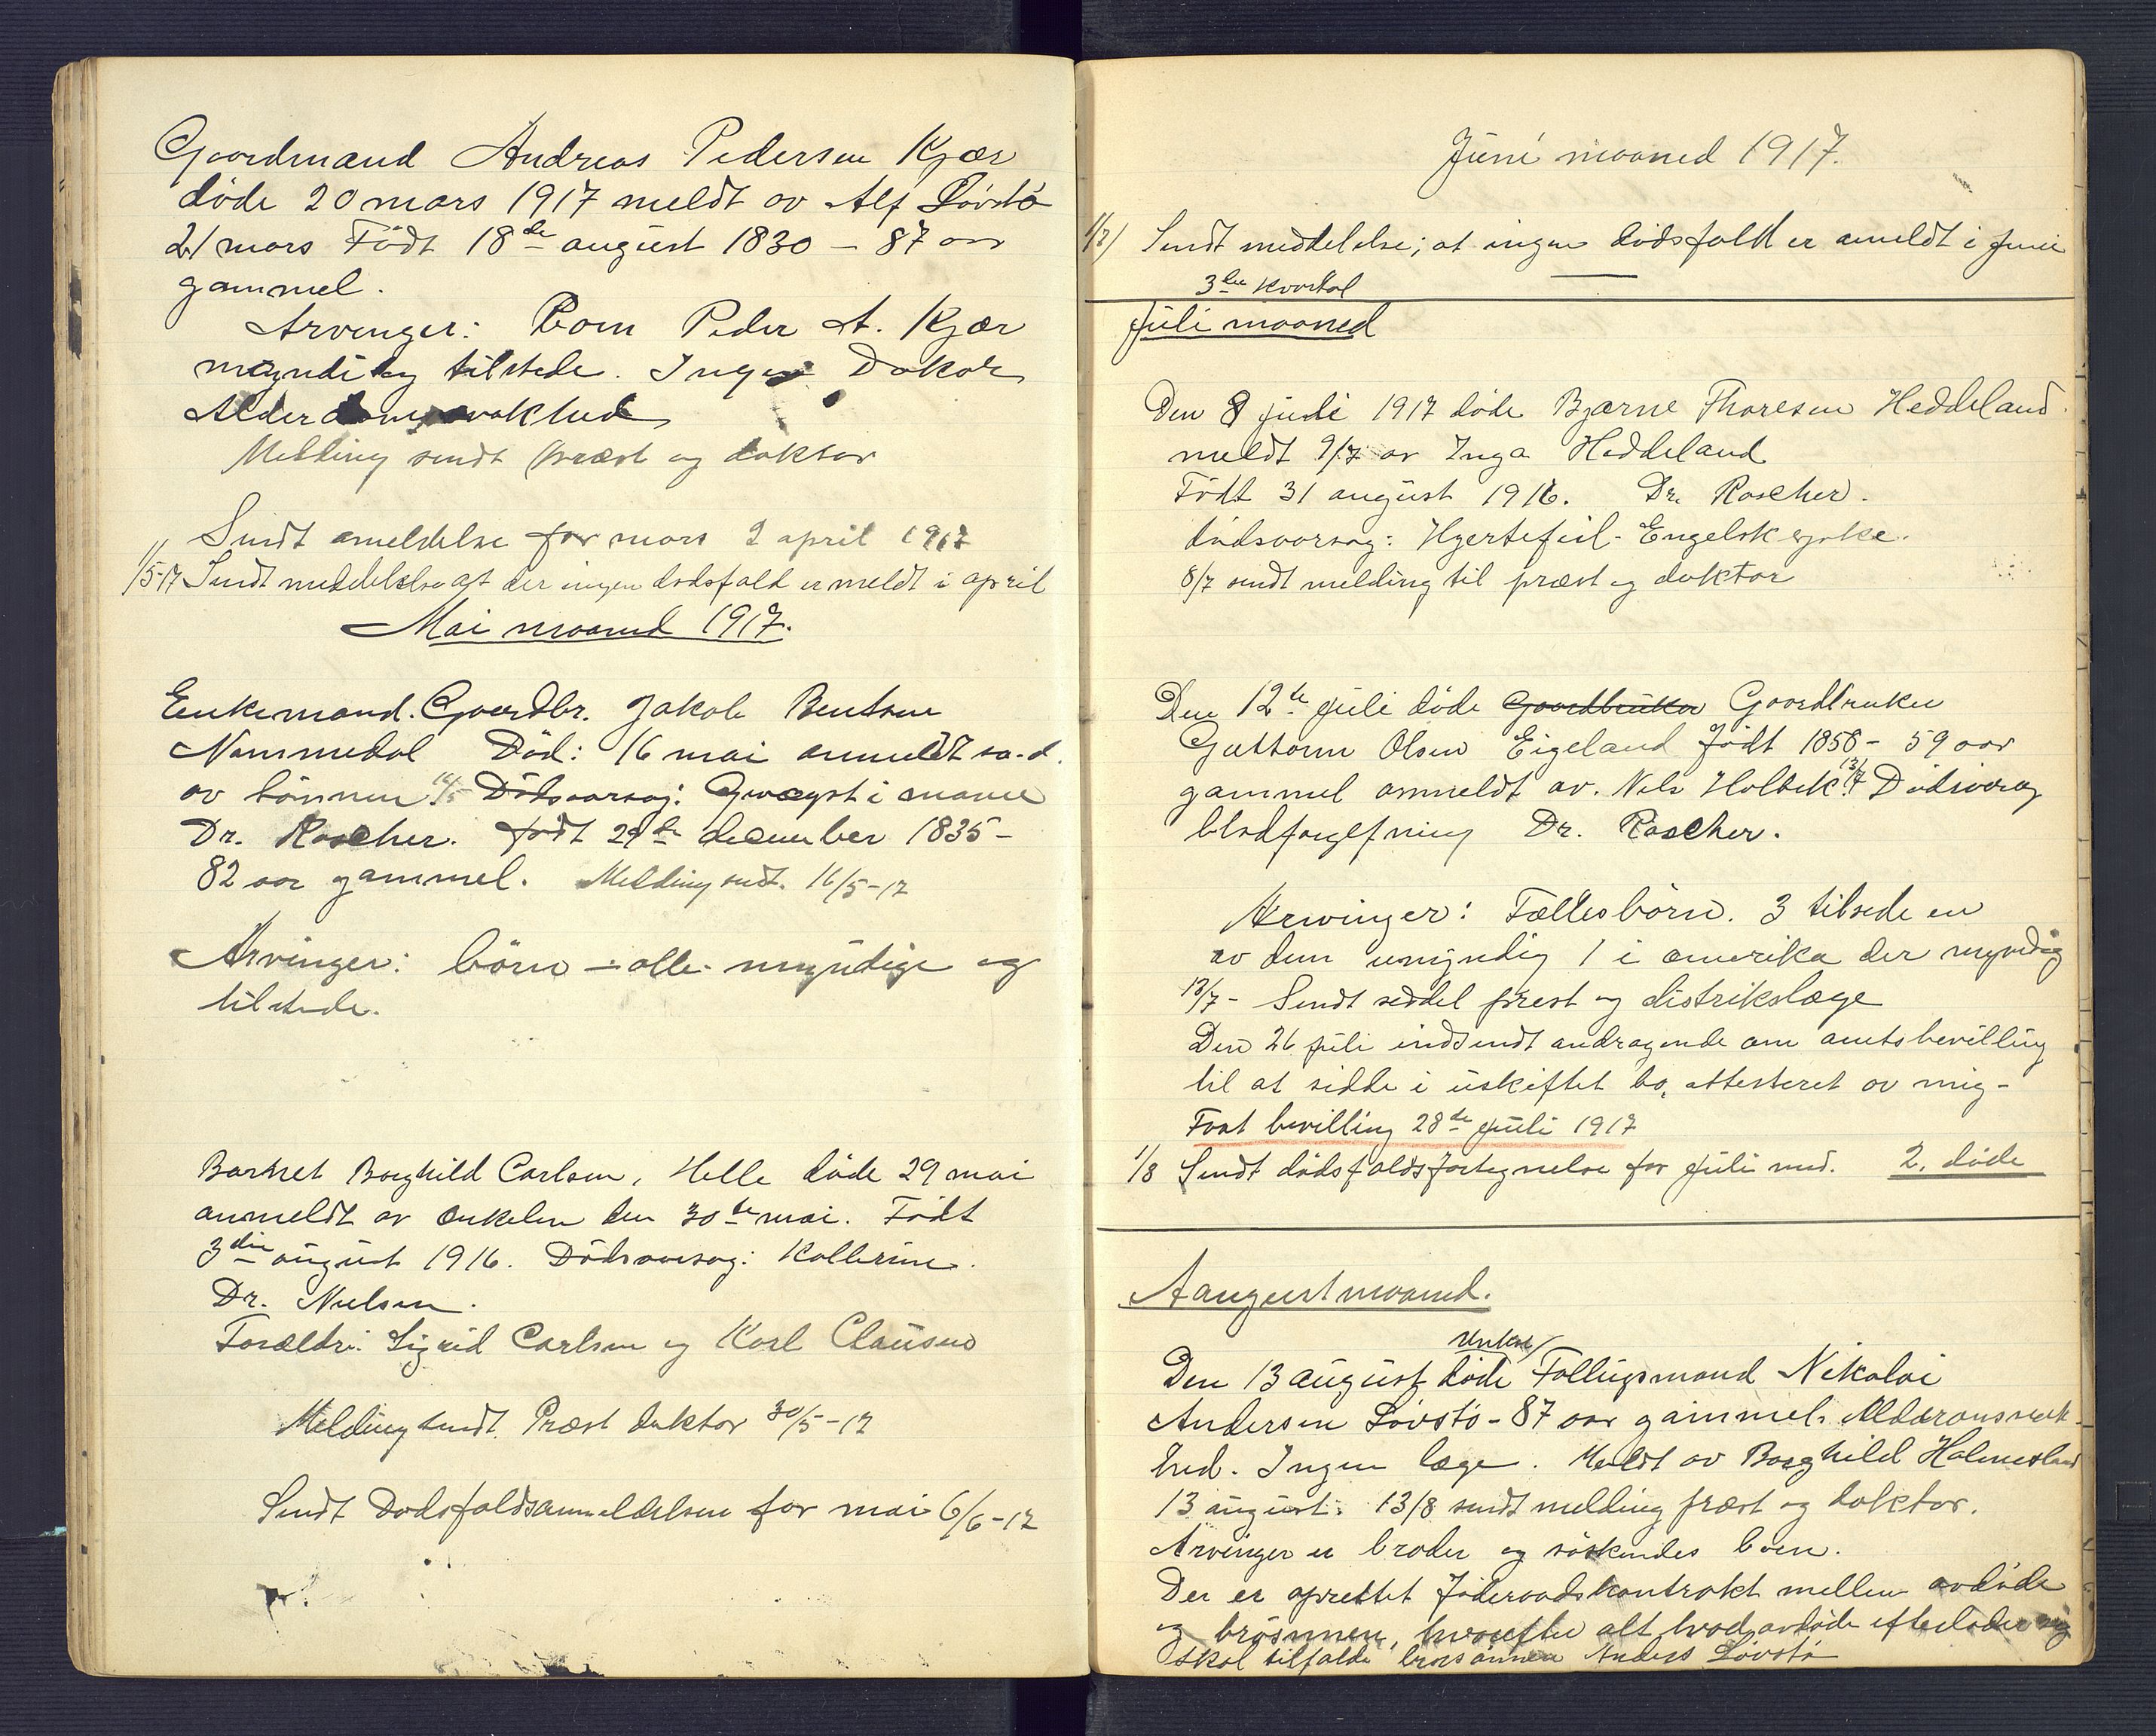 Gaardmand Andreas Pedersen Kjær
döde 20 mars 1917 meldt av Alf Lövstö
21 mars Födt 18de august 1830 – 87 aar
gammel.
Arvinger: Barn Peder A. Kjær
myndig tilstede. Ingen Doktor
Alderdomssvakhed
Melding sendt præst og doktor
Sendt anmeldelse for mars 2 april 1917
1/5-17 Sendt meddelelse at der ingen dödsfald er meldt i april
Mai maaned 1917.
Enkemand. Gaardbr. Jakob Bentsen
Nommedal Död: 16 mai anmeldt sa. d.
av sönnen 16/5 Dödsaarsag: Gwægst i mave
Dr. Roscher. født 29de december 1835 –
82 aar gammel. Melding sendt. 16/5-17
Arvinger: börn – alle myndige og
tilstede.
Barnet Borghild Carlsen, Helle döde 29 mai
anmeldt av onkelen den 30te mai. Födt
3die august 1916. Dödsaarsag: Kollerine.
Dr. Nielsen.
Forældre: Sigrid Carlsen og Karl Clausen
Melding sendt Præst doktor 30/5-17
Sendt Dodsfaldsanmeldelsen for mai 6/6-17
Juni maaned 1917.
1/7 Sendt meddelelse; at ingen dödsfald er anmeldt i Juni
3die kvartal
Juli maaned
Den 8 juli 1917 döde Bjarne Thoresen Heddeland.
meldt 9/7 av Inga Heddeland
Födt 31 august 1916. Dr. Roscher.
dödsaarsag: Hjertefeil - Engelsk syke.
8/7 sendt melding til præst og doktor
Den 12te juli döde Gaardbruker Gaardbruker
Guttorm Olsen Eigeland födt 1858 – 59 aar
gammel anmeldt av. Nils Holbek 13/7 Dödsaarsag
blodforgiftning Dr. Roscher.
Arvinger: Fællesbörn. 3 tilstede en
av dem umyndig 1 i amerika der myndig
13/7 – Sendt seddel prest og distrikslæge
Den 26 juli indsendt andragende om amtsbevilling
til at sidde i uskiftet bo, attesteret av mig –
Faat bevilling 28de juli 1917
1/8 Sendt dödsfaldsfortegnelse for juli md. 2. döde
Aaugust maaned.
Unkar/
Den 13 august döde Follugsmand Nikolai
Andersen Lövstö – 87 aar gammel. Alderdomssvak-
hed. Ingen læge. Meldt av Borghild Holmesland
13 august. 13/8 sendt melding præst og doktor.
Arvinger er broder og söskendes barn.
Der er oprettet föderaadskontrakt mellem avdöde
og brösönnen, hvorefter alt hvad avdöde efterlader sig
skal tilfalde brorsönnen Anders Lövstö